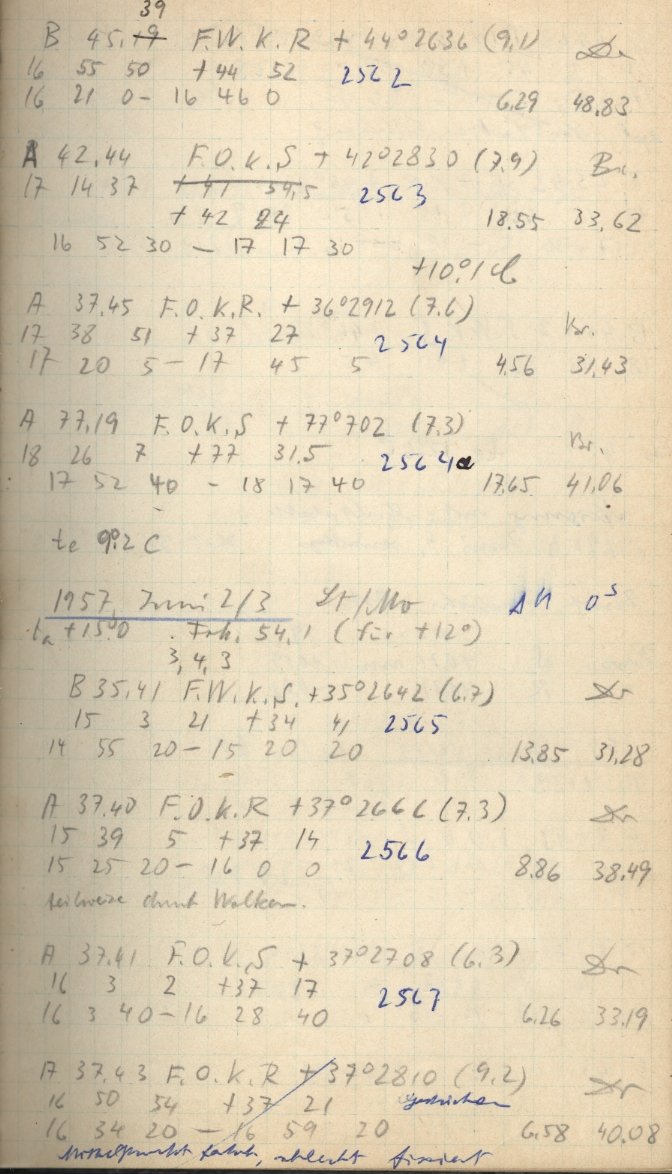 39
B 45.19 F.W.K.R + 44°2636 (9,1) Dr
16 55 50 +44 52 2562
16 21 0 - 16 46 0 6.29 48.83
A 42.44 F.O.K.S + 42°2830 (7.9) Br.
17 14 37 +41 54,5 2563
+42 24 18.55 33.62
16 52 30 - 17 17 30
+10°,1 C
A 37.45 F.O.K.R. + 36°2912 (7.6) Br.
17 38 51 +37 27 2564
17 20 5 - 17 45 5 4.56 31.43
A 77.19 F.O.K.S + 77°702 (7.3) Br.
18 26 7 +77 31.5 2564a
17 52 40 - 18 17 40 17.65 41.06
te 9°.2 C
1957, Juni 2/3 St/Mo
ta +15°0 Fok. 54.1 (für +12°)
3,4,3
B 35.41 F.W.K.S. +35°2642 (6.7) Dr
15 3 21 +34 41 2565
14 55 20 - 15 20 20 13.85 31.28
A 37.40 F.O.K.R +37°2666 (7.3) Dr
15 39 5 +37 14 2566
15 25 20 - 16 0 0 8.86 38.49
teilweise durch Wolken.
A 37.41 F.O.K.S + 37°2708 (6.3) Dr
16 3 2 +37 17 2567
16 3 40 - 16 28 40 6.26 33.19
A 37.43 F.O.K.R +37°2810 (9.2) Dr
16 50 54 +37 21 gestrichen
16 34 20 - 16 59 20 6.58 40.08
Mittelpunkt falsch, schlecht fixiert